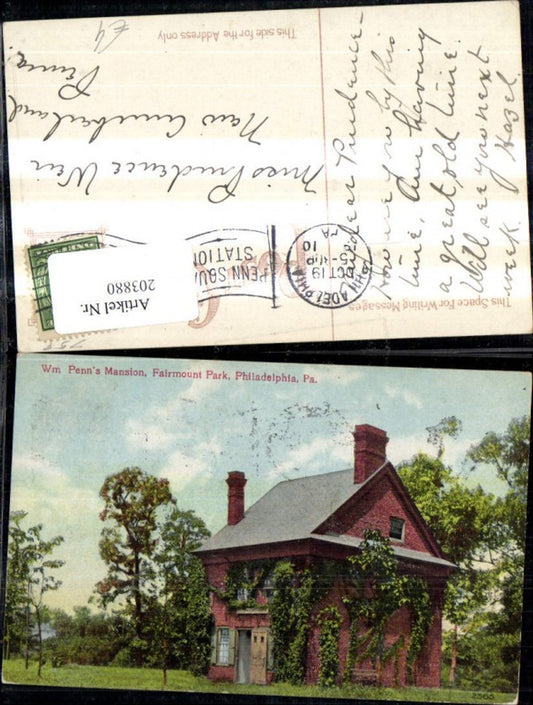 This Space For Writing Messages
This side for the Address only
Dear Prudence -
How are you by this
time. Am Having
a great old time.
Will see you next
week. Hazel
PHILADELPHIA
OCT 19
10
PA
PENN SQUA
STATION
Miss Prudence Weir
New Cumberland
Penna.
£4
Artikel Nr.
203880
Wm Penn's Mansion, Fairmount Park, Philadelphia, Pa.